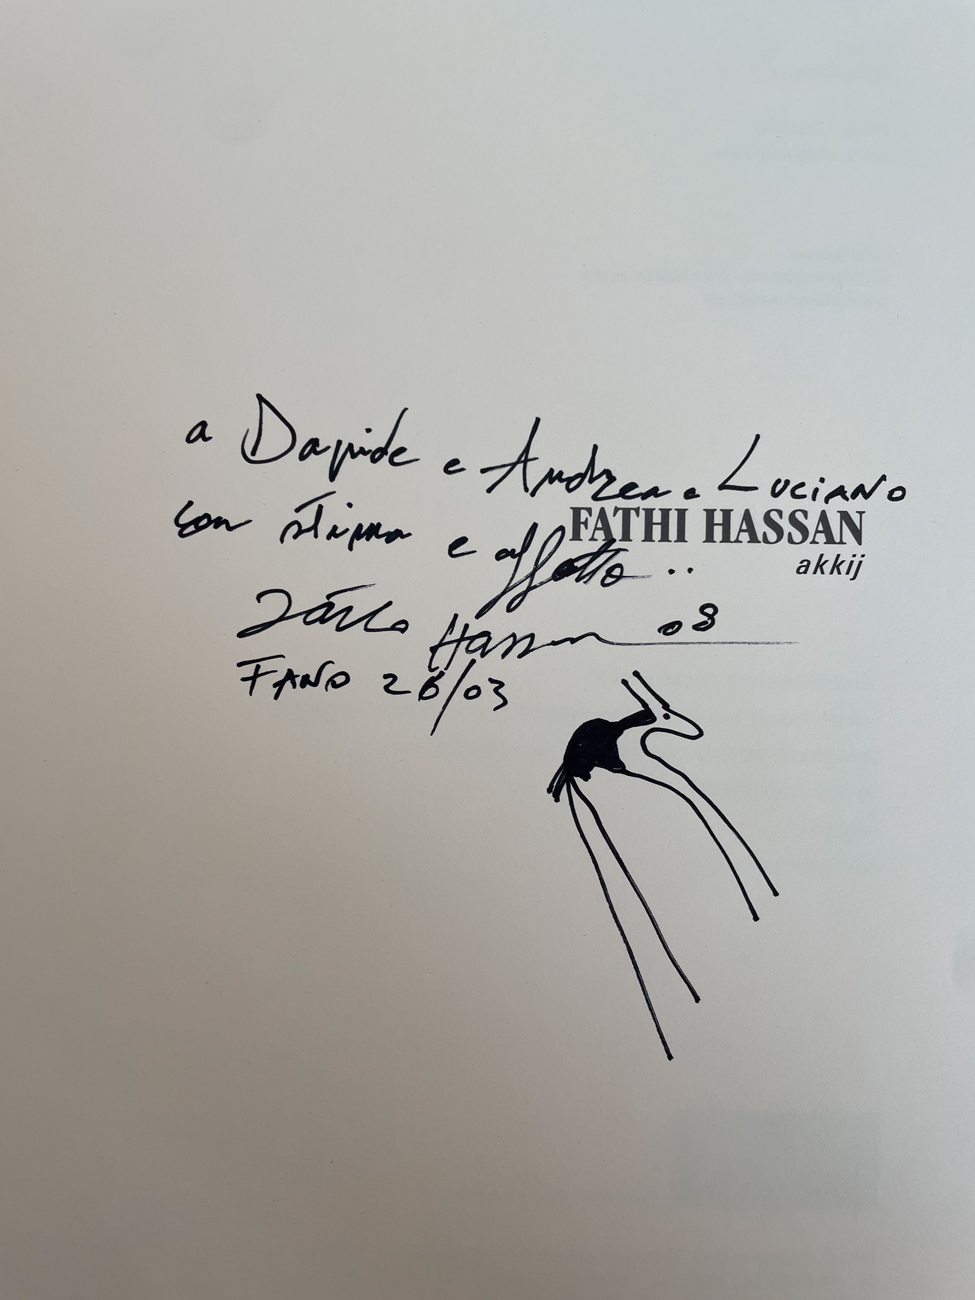 a Davide e Andrea e Luciano
con stima e affetto..
FATHI HASSAN
akkij
Hassan 08
FANO 26/03